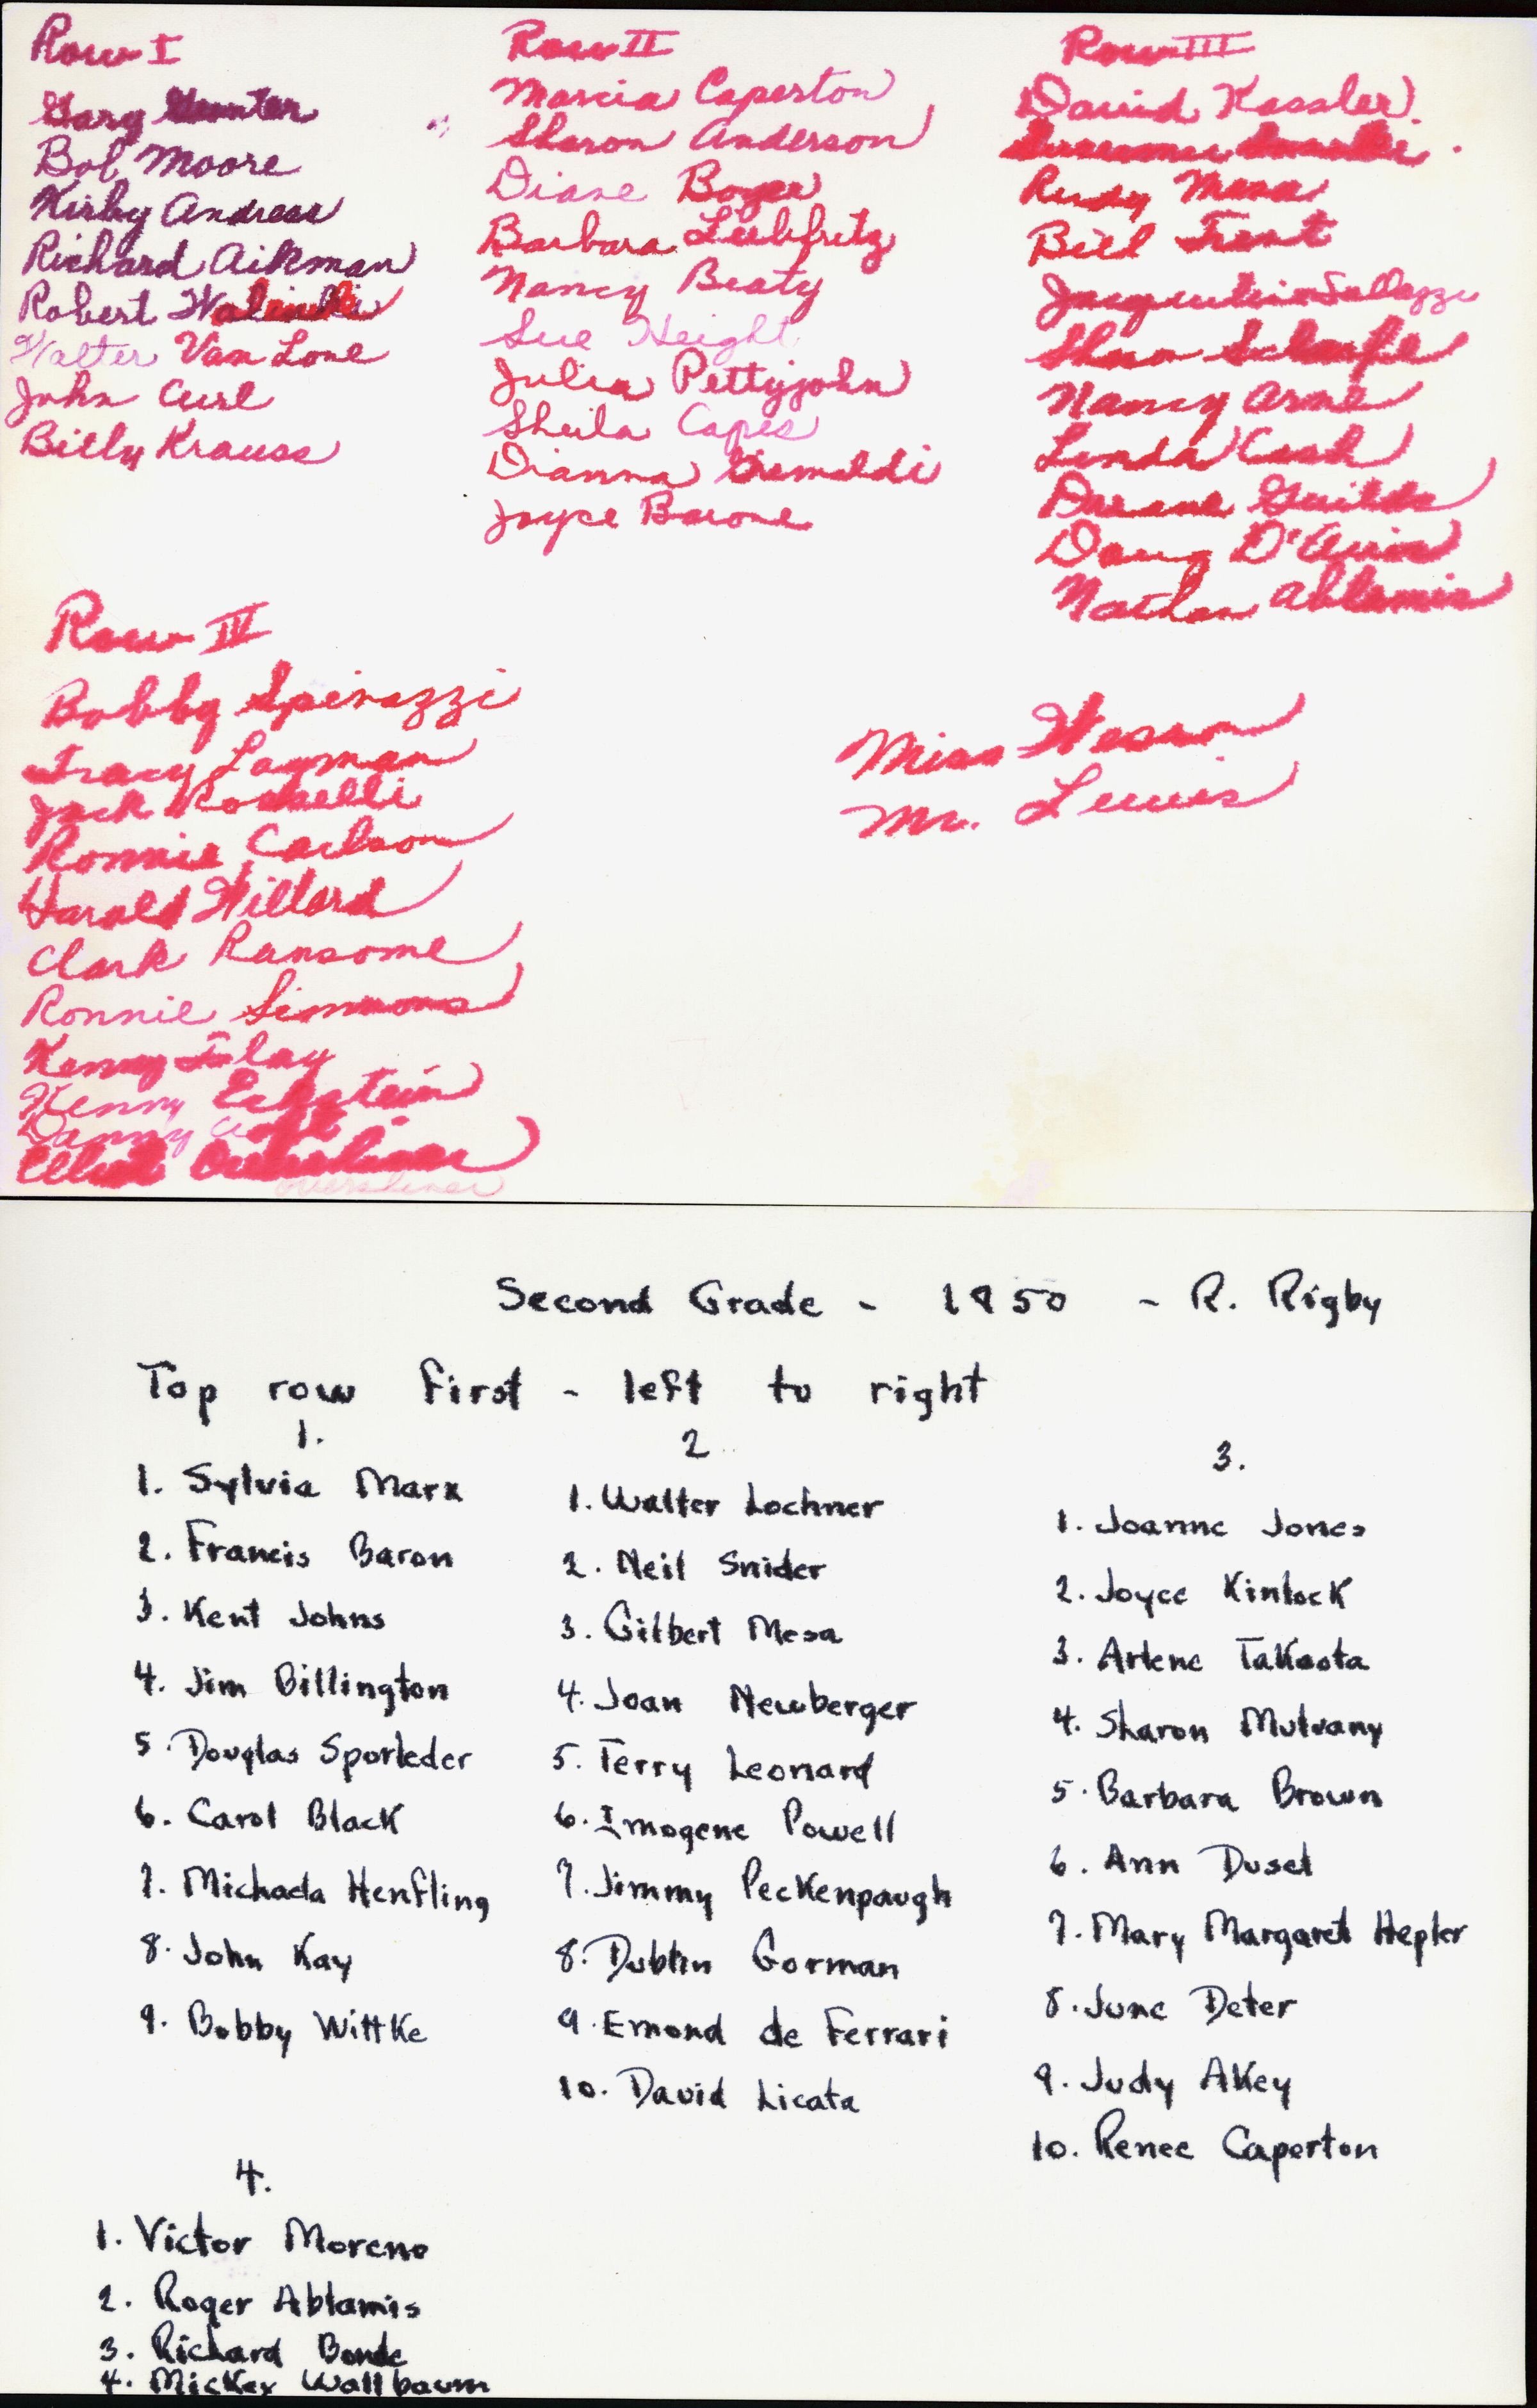 Row I
Gary Gunter
Bob Moore
Kirby Andreas
Richard Aikman
Robert
Walter Van Lone
John Curl
Billy Krauss
Row II
Marcia Caperton
Sharon Anderson
Diane Boyer
Barbara Leibfritz
Nancy Beaty
Sue Height
Julia Pettyjohn
Sheila Capes
Dianna Grimaldi
Joyce Barone
Row III
David Kassler
Rudy Mena
Bill Trent
Nancy Arne
Linda Cash
Duane Guilds
Doug
Nathan Ablamis
Row IV
Bobby Spinazzi
Tracy Layman
Jack Rosselli
Ronnie Carlson
Harold Willard
Clark Ransome
Ronnie Simmons
Kenny
Kenny Eckstein
Danny
Miss
Mr. Lewis
Second Grade - 1950 - R. Rigby
Top row first - left to right
1.
1. Sylvia Marx
2. Francis Baron
3. Kent Johns
4. Jim Billington
5. Douglas Sporleder
6. Carol Black
7. Michada Henfling
8. John Kay
9. Bobby Wittke
2
1. Walter Lochner
2. Neil Snider
3. Gilbert Mesa
4. Joan Newberger
5. Terry Leonard
6. Imogene Powell
7. Jimmy Peckenpaugh
8. Dublin Gorman
9. Emond de Ferrari
10. David Licata
3.
1. Joanne Jones
2. Joyce Kinlock
3. Arlene Takaota
4. Sharon Mulvany
5. Barbara Brown
6. Ann Dusel
7. Mary Margaret Hepler
8. June Deter
9. Judy Akey
10. Renee Caperton
4.
1. Victor Moreno
2. Roger Ablamis
3. Richard Bonde
4. Mickey Wallbaum